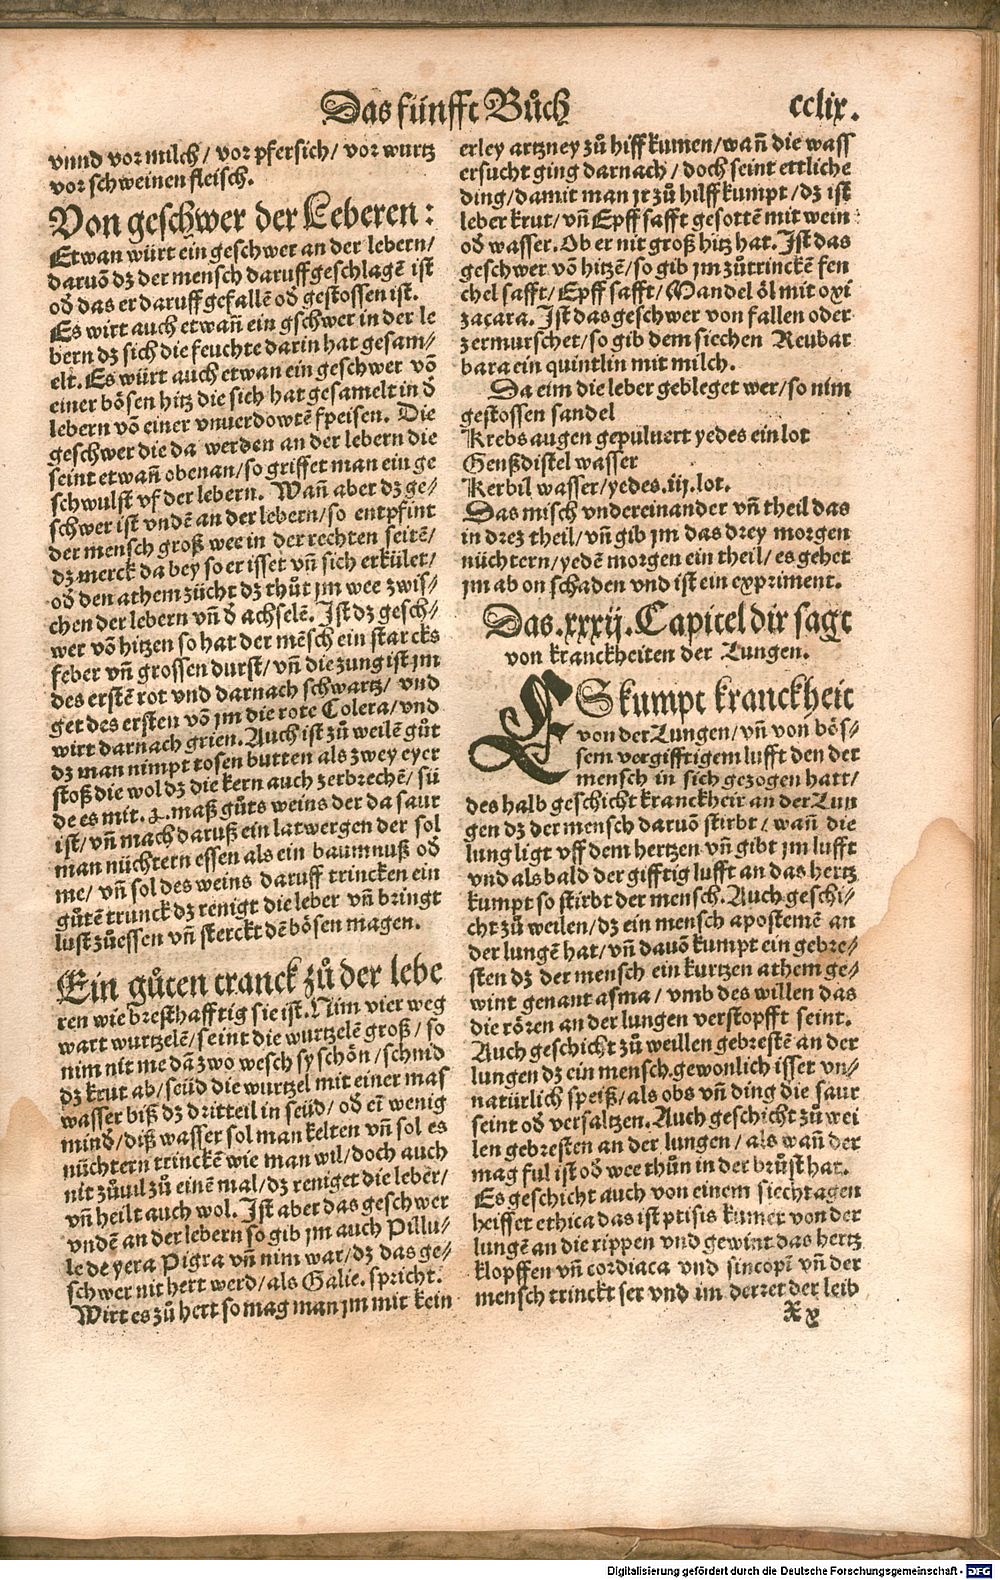 Das fünfft Bůch
cclix.
vnnd vor milch/ vor pfersich/ vor wurtz
vor schweinen fleisch.
Von geschwer der Leberen:
Etwan würt ein geschwer an der lebern/
daruō dz der mensch daruff geschlagē ist
od das er daruff gefallē od gestossen ist.
Es wirt auch etwañ ein gschwer in der le
bern dz sich die feuchte darin hat gesam-
elt. Es würt auch etwan ein geschwer vō
einer bösen hitz die sich hat gesamelt in d̄
lebern vō einer vnuerdowtē speisen. Die
geschwer die da werden an der lebern die
seint etwañ obenan/ so griffet man ein ge
schwulst vf der lebern. Wañ aber dz ge-
schwer ist vndē an der lebern/ so entpfint
der mensch groß wee in der rechten seitē/
dz merck da bey so er isset vñ sich erkület/
od den athem zücht dz thůt jm wee zwis-
chen der lebern vñ d̄ achselē. Ist dz gesch-
wer vō hitzen so hat der mēsch ein starcks
feber vñ grossen durst/ vñ die zung ist jm
des erstē rot vnd darnach schwartz/ vnd
get des ersten vō jm die rote Colera/ vnd
wirt darnach grien. Auch ist zů weilē gůt
dz man nimpt rosen butten als zwey eyer
stoß die wol dz die kern auch zerbrechē/ sü
de es mit .2. maß gůts weins der da saur
ist/ vñ mach daruß ein latwergen der sol
man nüchtern essen als ein baumnuß od
me/ vñ sol des weins daruff trincken ein
gůtē trunck dz renigt die leber vñ bringt
lust zůessen vñ sterckt dē bösen magen.
Ein gůten tranck zů der lebe
ren wie bresthafftig sie ist. Nim vier weg
wart wurtzelē/ seint die wurtzelē groß/ so
nim nit me dā zwo wesch sy schön/ schnid
dz krut ab/ seüd die wurtzel mit einer mas
wasser biß dz dritteil in seüd/ od eī wenig
mind/ diß wasser sol man kelten vñ sol es
nüchtern trinckē wie man wil/ doch auch
nit zůuil zů einē mal/ dz reniget die leber/
vñ heilt auch wol. Ist aber das geschwer
vndē an der lebern so gib jm auch Pillu-
le de yera Pigra vñ nim war/ dz das ge-
schwer nit hert werd/ als Galie. spricht.
Wirt es zů hert so mag man jm mit kein
erley artzney zů hilff kumen/ wañ die wass
ersucht ging darnach/ doch seint ettliche
ding/ damit man jr zů hilff kumpt/ dz ist
leber krut/ vñ Epff safft gesottē mit wein
od wasser. Ob er nit groß hitz hat. Ist das
geschwer vō hitzē/ so gib jm zůtrinckē fen
chel safft/ Epff safft/ Mandel öl mit oxi
zacara. Ist das geschwer von fallen oder
zermurschet/ so gib dem siechen Reubar
bara ein quintlin mit milch.
Da eim die leber gebleget wer/ so nim
gestossen sandel
Krebs augen gepuluert yedes ein lot
Genßdistel wasser
Kerbil wasser/ yedes .iij. lot.
Das misch vndereinander vñ theil das
in drez theil/ vñ gib jm das drey morgen
nüchtern/ yedē morgen ein theil/ es gehet
jm ab on schaden vnd ist ein expriment.
Das .xxxij. Capitel dir sagt
von kranckheiten der Lungen.
ES kumpt kranckheit
von der Lungen/ vñ von bös-
sem vergifftigem lufft den der
mensch in sich gezogen hatt/
des halb geschicht kranckheit an der Lun
gen dz der mensch daruō stirbt/ wañ die
lung ligt vff dem hertzen vñ gibt jm lufft
vnd als bald der gifftig lufft an das hertz
kumpt so stirbt der mensch. Auch geschi-
cht zů weilen/ dz ein mensch apostemē an
der lungē hat/ vñ dauō kumpt ein gebre-
sten dz der mensch ein kurtzen athem ge-
wint genant asma/ vmb des willen das
die rören an der lungen verstopfft seint.
Auch geschicht zů weillen gebrestē an der
lungen dz ein mensch gewonlich isset vn-
natürlich speiß/ als obs vñ ding die saur
seint od versaltzen. Auch geschicht zů wei
len gebresten an der lungen/ als wañ der
mag ful ist od wee thůn in der brůst hat.
Es geschicht auch von einem siechtagen
heisset ethica das ist ptisis kumer von der
lungē an die rippen vnd gewint das hertz
klopffen vñ cordiaca vnd sincopī vñ der
mensch trinckt ser vnd im derret der leib
Xx
Digitalisierung gefördert durch die Deutsche Forschungsgemeinschaft - DFG